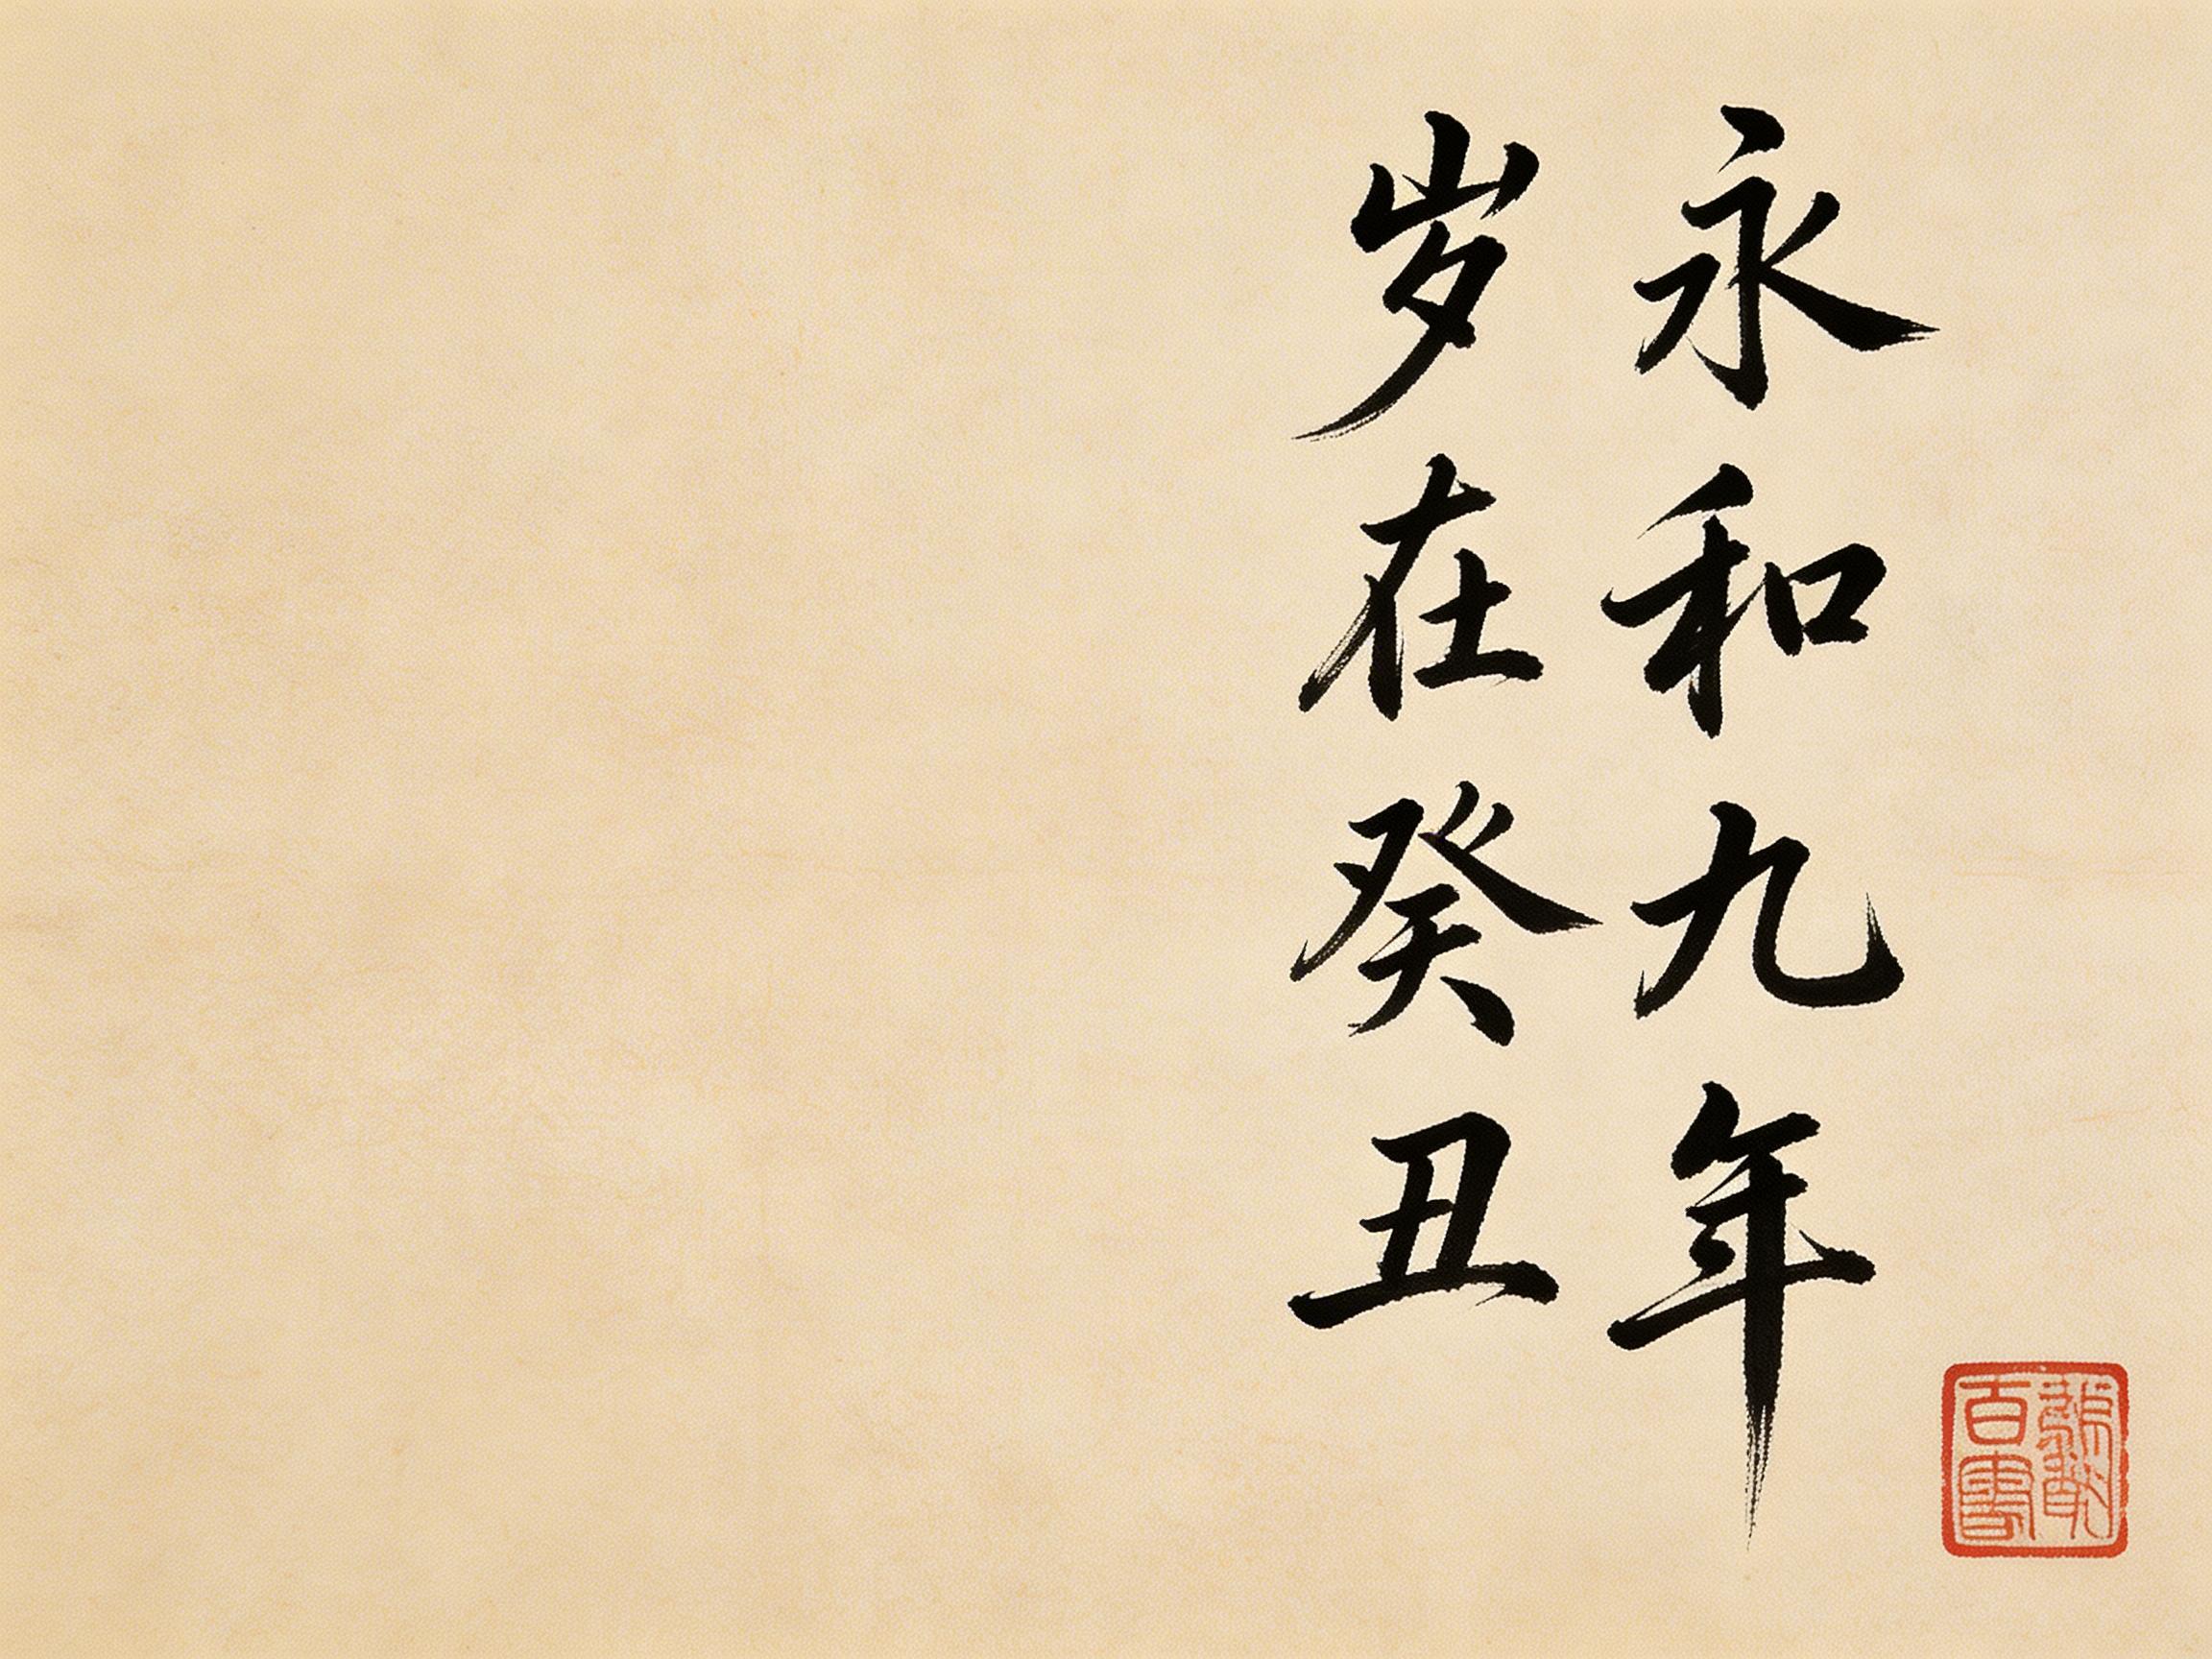 永和九年
岁在癸丑